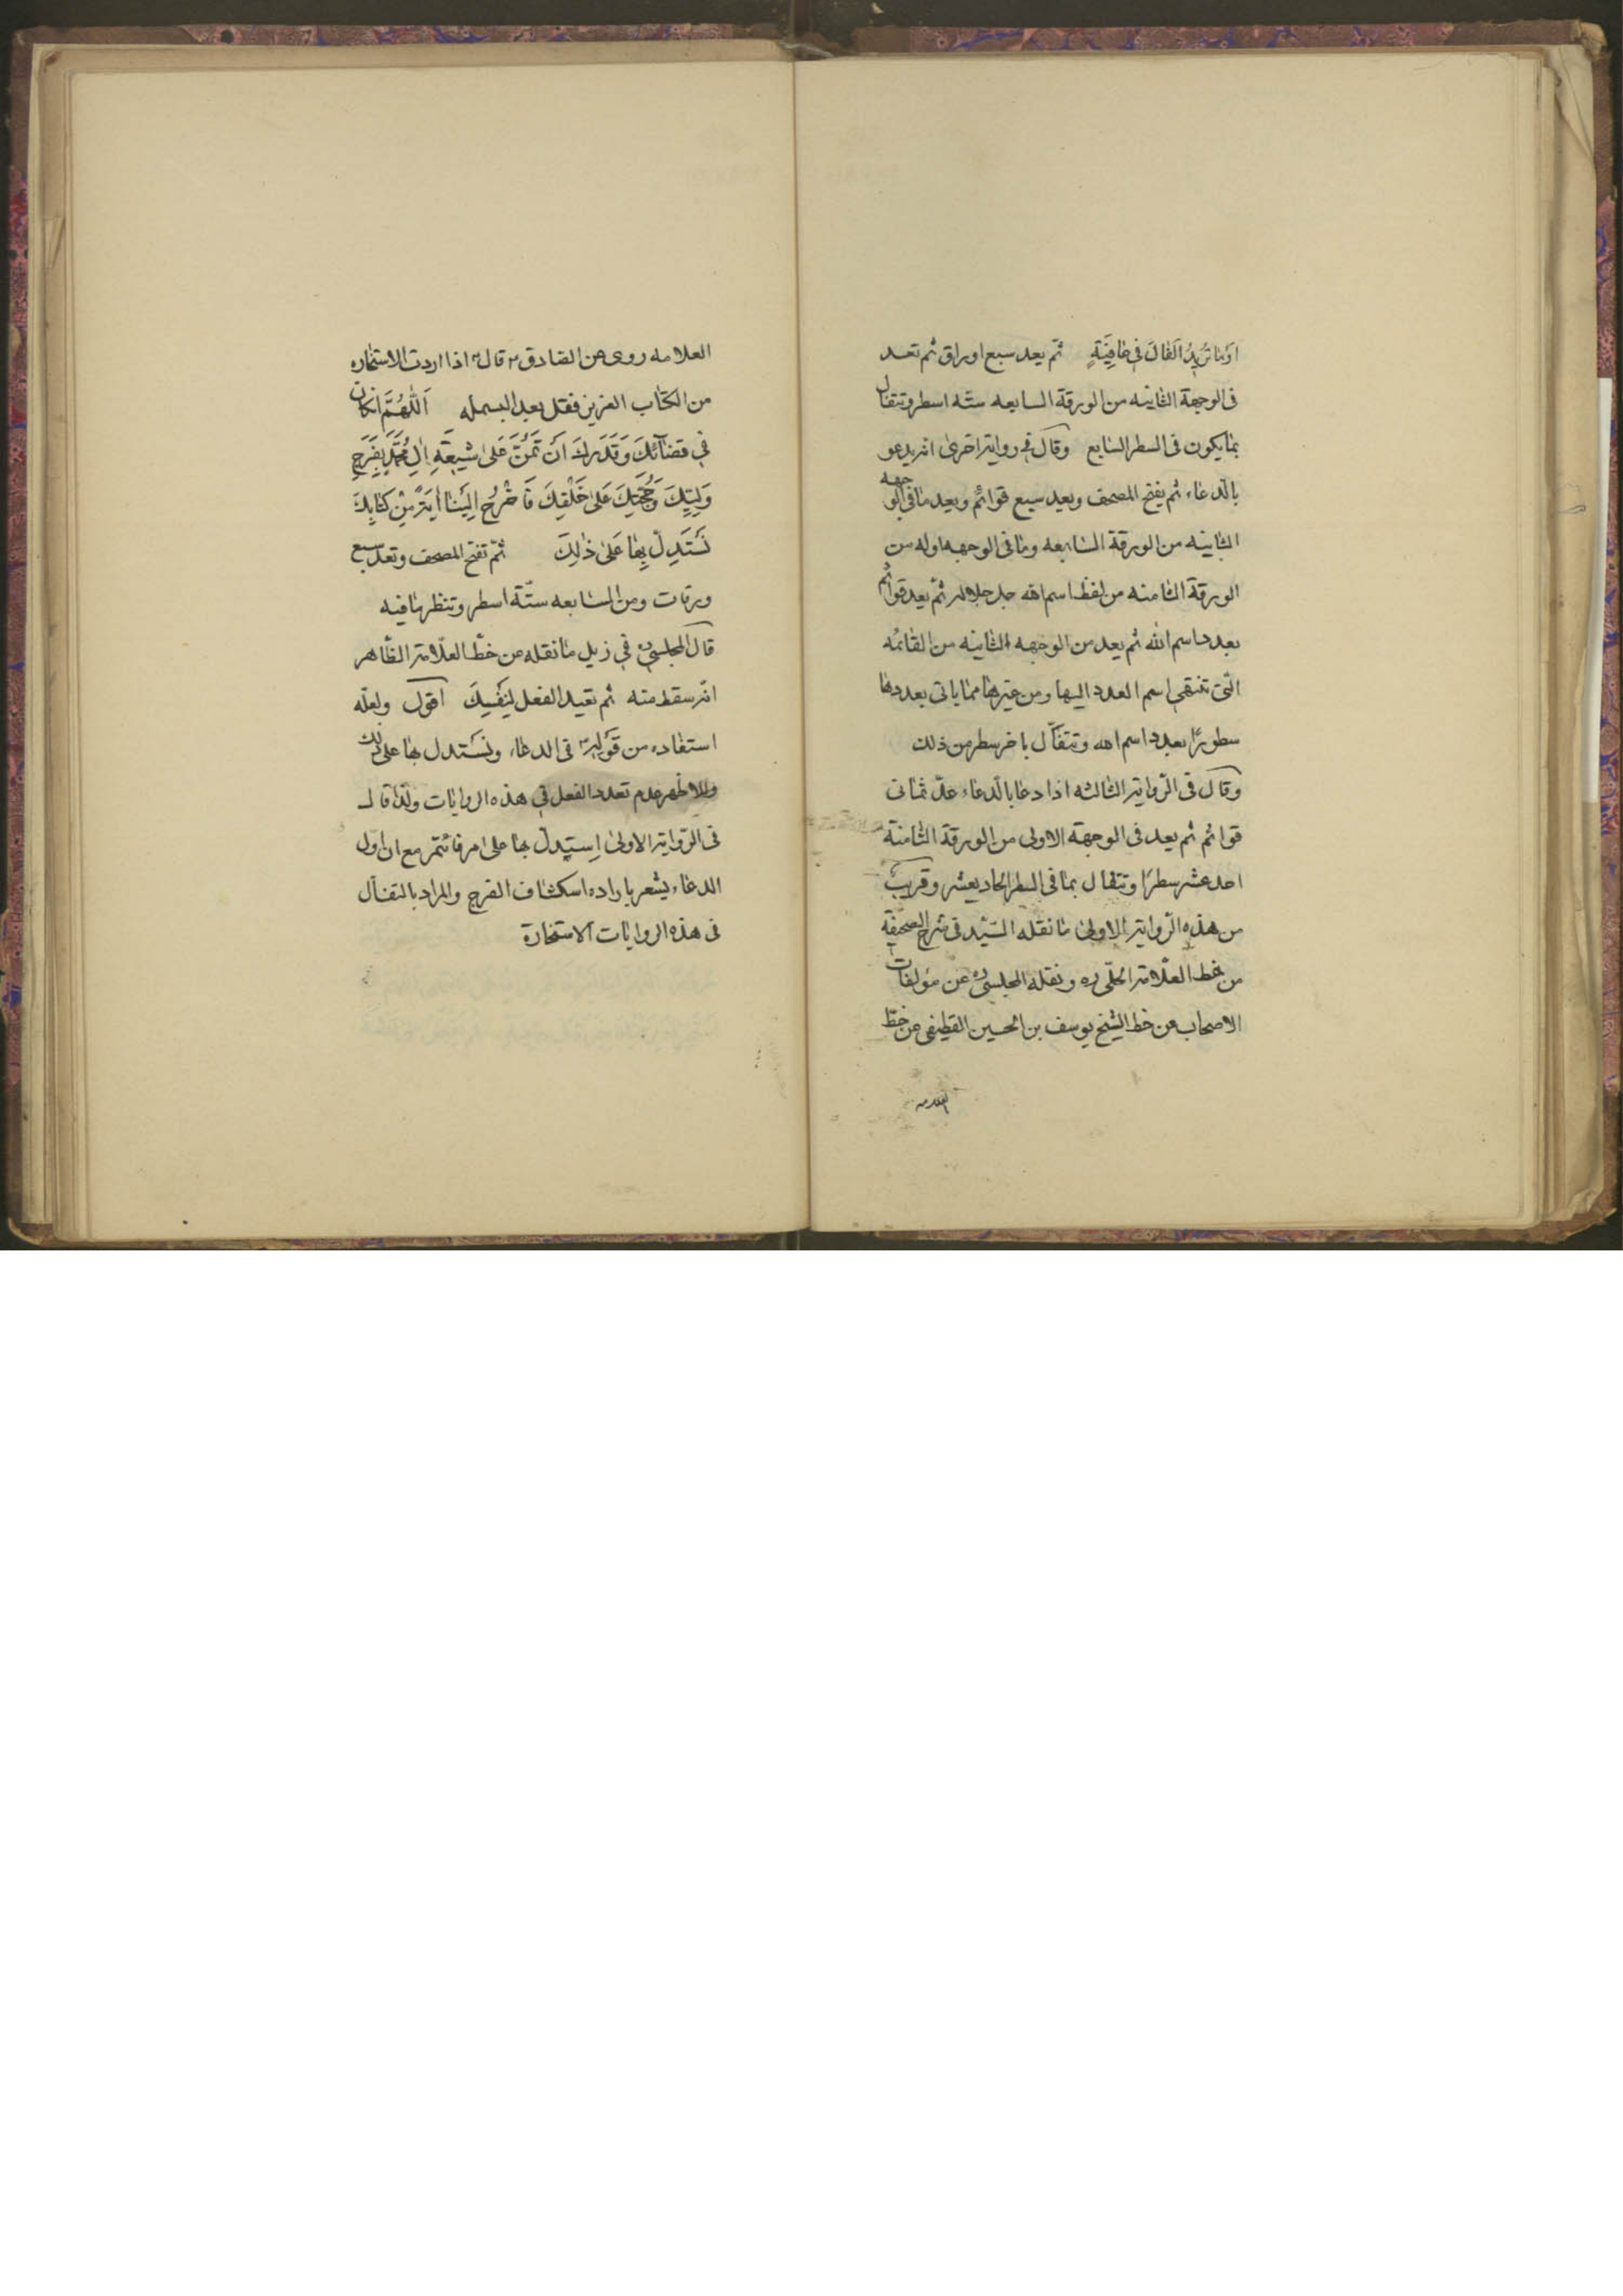 ثم يعد سبع اوراق ثم تعد
فى الوجهة الثانيه من الورقة السابعه ستّه اسطر وتتفال
بما يكون فى السطر السابع وقال فى رواية اخرى انه يدعو
بالدعاء ثم يفتح المصحف ويعد سبع قوائم ويعد ما فى الوجهه
الثانيه من الورقة السابعه وما فى الوجهه اوله من
الورقة الثامنه من لفظ اسم الله جل جلاله ثمّ يعد قوائم
بعدد اسم الله ثم يعد من الوجهه الثانيه من القائمه
التى تنتهى اسم العدد اليها ومن غيرها مما ياتى بعدها
سطورًا بعدد اسم الله وتتفأل باخر سطر من ذلك
وقال فى الرّواية الثالثه اذا دعا بالدعاء عدّ ثمانى
قوائم ثم يعد فى الوجهة الاولى من الورقة الثامنة
احد عشر سطرًا وتتفال بما فى السطر الحاديعشر وقريب
من هذه الرّواية الاولى ما نقله السّيّد فى شرح الصحيفة
من خط العلّامة الحلّى ره ونقله المجلسى ره عن مؤلفات
الاصحاب من خط الشيخ يوسف بن الحسين القطيفى من خطّ
العلامه
العلامه روى عن الصادق ع قال ع اذا اردت الاستخاره
من الكتاب العزيز فقل بعد البسمله اَللّٰهُمَّ انكان
فِي قضَآئِكَ وَقَدَرِكَ اَنْ تَمُنَّ عَلىٰ شيعَةِ اٰلِ مُحَمَّدٍ بِفَرَجِ
وَلِيِّكَ وَحُجَّتِكَ عَلىٰ خَلْقِكَ فَاَخْرِجْ اِلَيْنَا اٰيَةً مِنْ كِتَابِكَ
نَسْتَدِلُّ بِهَا عَلىٰ ذٰلِكَ ثمّ تفتح المصحف وتعد سبع
ورقات ومن السابعه ستّة اسطر وتنظر ما فيه
قال المجلسى ره فى زيل ما نقله من خطّ العلّامة الظاهر
انّه سقط منه ثم تعيد الفعل لِنَفْسِكَ اقول ولعلّه
استفاده من قَوْلِه ع فى الدعاء ونَسْتدل بها على ذلك
والاظهر عدم تعدد الفعل فى هذه الروايات ولذا قال
فى الرّواية الاولىٰ اِستَدِلّ بها على امر قائمهم مع ان اول
الدعاء يشعر باراده اسكشاف الفرج والمراد بالتفأل
فى هذه الروايات الاستخارة